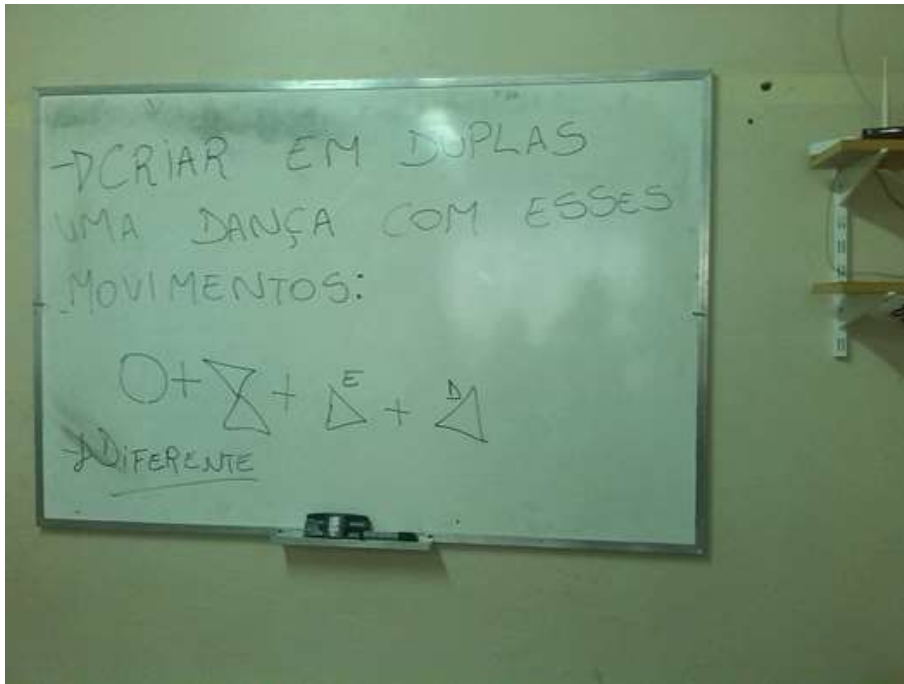 → CRIAR EM DUPLAS
UMA DANÇA COM ESSES
MOVIMENTOS:
E D
+ + +
→ DIFERENTE